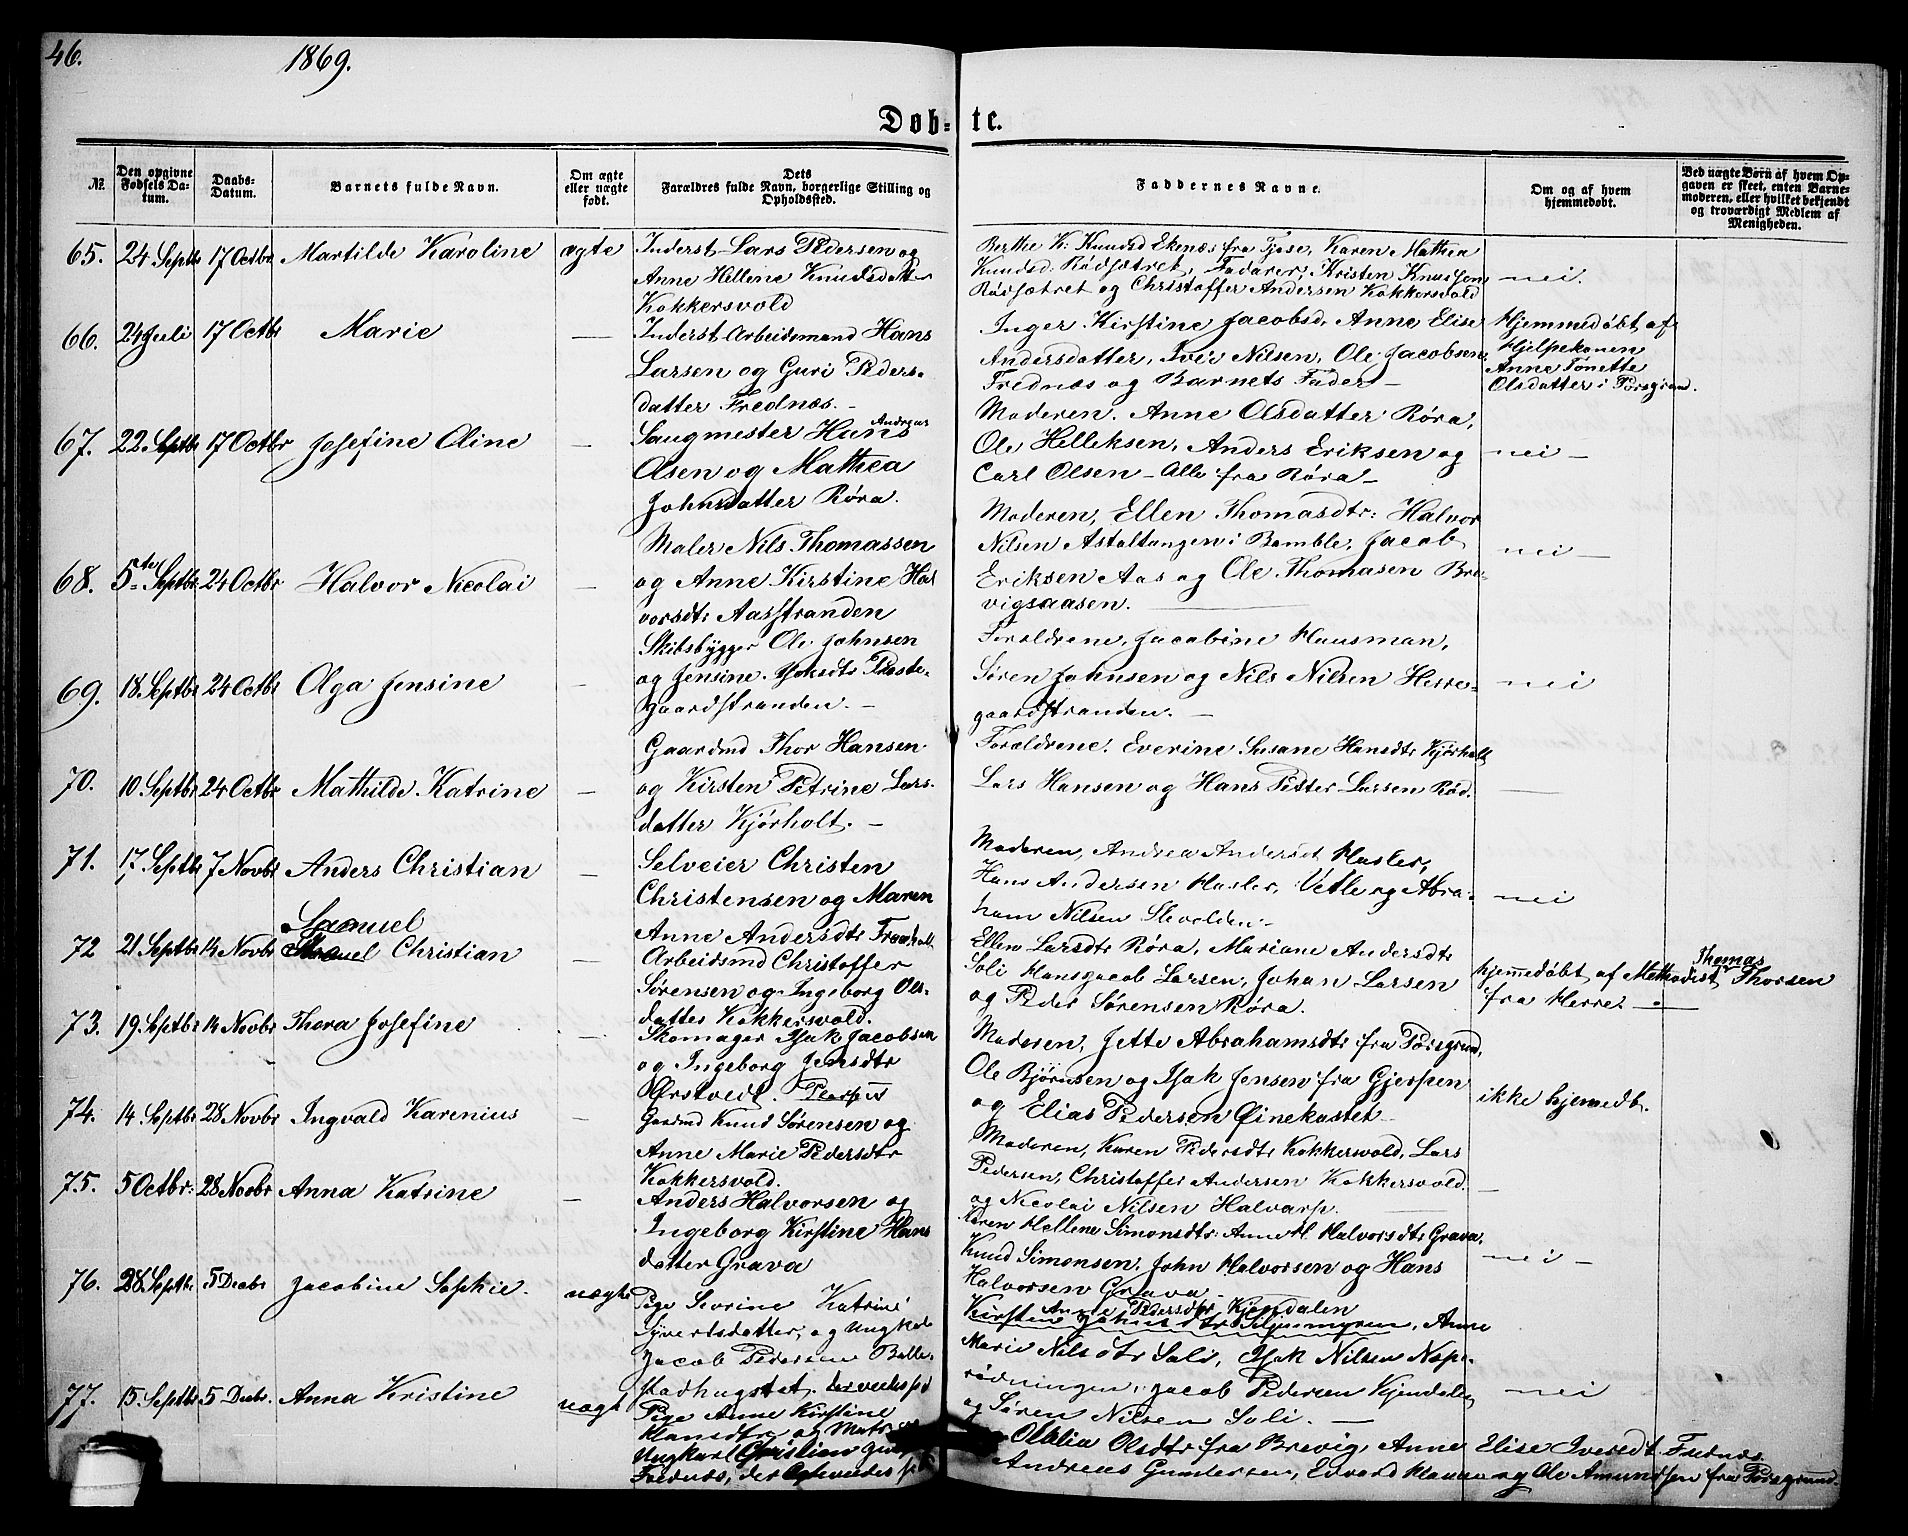 46.
1869.
Døb-te.
№
Den opgivne Fødsels Da-tum.
Daabs-Datum.
Barnets fulde Navn.
Om ægte eller uægte født.
Dets Forældres fulde Navn, borgerlige Stilling og Opholdssted.
Faddernes Navne.
Om og af hvem hjemmedøbt.
Ved uægte Børn af hvem Op-gaven er skeet, enten Barne-moderen, eller hvilket bekjendt og troværdigt Medlem af Menigheden.
65. 24 Septbr 17 Octbr Martilde Karoline ægte
Inderst Lars Pedersen og
Anne Hellene Knudsdatter
Kokkersvold
Berthe K. Knudsd Ekenæs fra Tjose, Karen Mathea
Knudsd. Rødsætret, Fadderer, Kristen Knudson
Rødsætret og Christoffer Andersen Kokkersvold
nei.
66. 24 Juli 17 Octbr Marie —
Inderst Arbeidsmand Hans
Larsen og Guri Peders-
datter Frednæs. —
Inger Kirstine Jacobsd, Anne Elise
Andersdatter, Iver Nilsen, Ole Jacobsen
Frednæs og Barnets Fader —
Hjemmedøbt af
Hjelpekonen
Anne Tonette
Olsdatter i Porsgrund.
67. 22 Septbr 17 Octbr Josefine Oline —
Saugmester Hans Andreas
Olsen og Mathea
Johnsdatter Røra.
Moderen. Anne Olsdatter Røra,
Ole Helleksen, Anders Eriksen og
Carl Olsen — Alle fra Røra —
nei —
68. 5te Septbr 24 Octbr Halvor Nicolai —
Maler Nils Thomassen
og Anne Kirstine Hal
vorsdtr Aasstranden
Moderen, Ellen Thomasdtr: Halvor
Nilsen Astaltangen i Bamble, Jacob
Eriksen Aas og Ole Thomasen Bre-
vigsaasen.
nei —
69. 18 Septbr 24 Octbr Olga Jensine —
Skibsbygger Ole Johnsen
og Jensine Isaksdtr Præste-
gaardstranden. —
Forældrene, Jacobine Hausman,
Søren Johnsen og Nils Nilsen Herre-
gaardstranden. —
nei
70. 10 Septbr 24 Octbr Mathilde Katrine —
Gaardmd Thor Hansen
og Kirsten Petrine Lars-
datter Kjørholt. —
Forældrene. Everine Susane Hansdtr Kjørholt
Lars Hansen og Hans Petter Larsen Rød.
—
71. 17 Septbr 7 Novbr Anders Christian —
Selveier Christen
Christensen og Maren
Anne Andersdtr
Moderen, Andrea Andersdt Hasler,
Hans Andersen Hasler, Vetle og Abra-
ham Nilsen
nei
Samuel
72 21 Septbr 14 Novbr Christian —
Arbeidsmd Christoffer
Sørensen og Ingeborg Ols-
datter Kokkersvold.
Ellen Larsdtr Røra, Mariane Andersdtr
Soli Hansjacob Larsen, Johan Larsen
og Peder Sørensen Røra.
hjemmedøbt af Methodist Thomas Thorsen
fra Herre. —
73. 19 Septbr 14 Novbr Thora Josefine —
Skomager Isak Jacobsen
og Ingeborg Jensdtr
Ørstvedt.
Moderen, Jette Abrahamsdtr fra Porsgrund,
Ole Bjørnsen og Isak Jensen fra Gjerpen
og Elias Pedersen Øinekastet —
ikke hjemedt.
74. 14 Septbr 28 Novbr Ingvald Karenius —
Gaardmd Knud Sørensen og
Anne Marie Pedersdtr
Kokkersvold.
Moderen, Karen Pedersdtr Kokkersvold, Lars
Pedersen, Christoffer Andersen Kokkersvold
og Nicolai Nilsen Halvarp.
75. 5 Octbr: 28 Novbr Anna Katrine —
Anders Halvorsen og
Ingeborg Kirstine Hans
datter Grava
Karen Hellene Simonsdtr: Anne M. Halvorsdtr Grava,
Knud Simonsen, John Halvorsen og Hans
Halvorsen Grava —
nei —
76. 28 Septbr 5 Decbr Jacobine Sophie. uægte
Pige Severine Katrine
Syvertsdatter, og Ungkarl
Jacob Pedersen
Kirstine Anne Pedersdtr Kjendalen
Anne
Marie Nilsdtr Soli, Isak Nilsen
Jacob Pedersen Kjendalen
og Søren Nilsen Soli. —
nei
77. 15 Septbr 5 Decbr. Anna Kristine uægt
Pige Anne Kirstine
Hansdtr og
Ungkarl Christian
Frednæs,
Olava Olsdtr fra Brevig, Anne Elise Iversdt Frednæs
Andreas Gundersen, Edvard og Ole Amundsen fra Porsgrund.